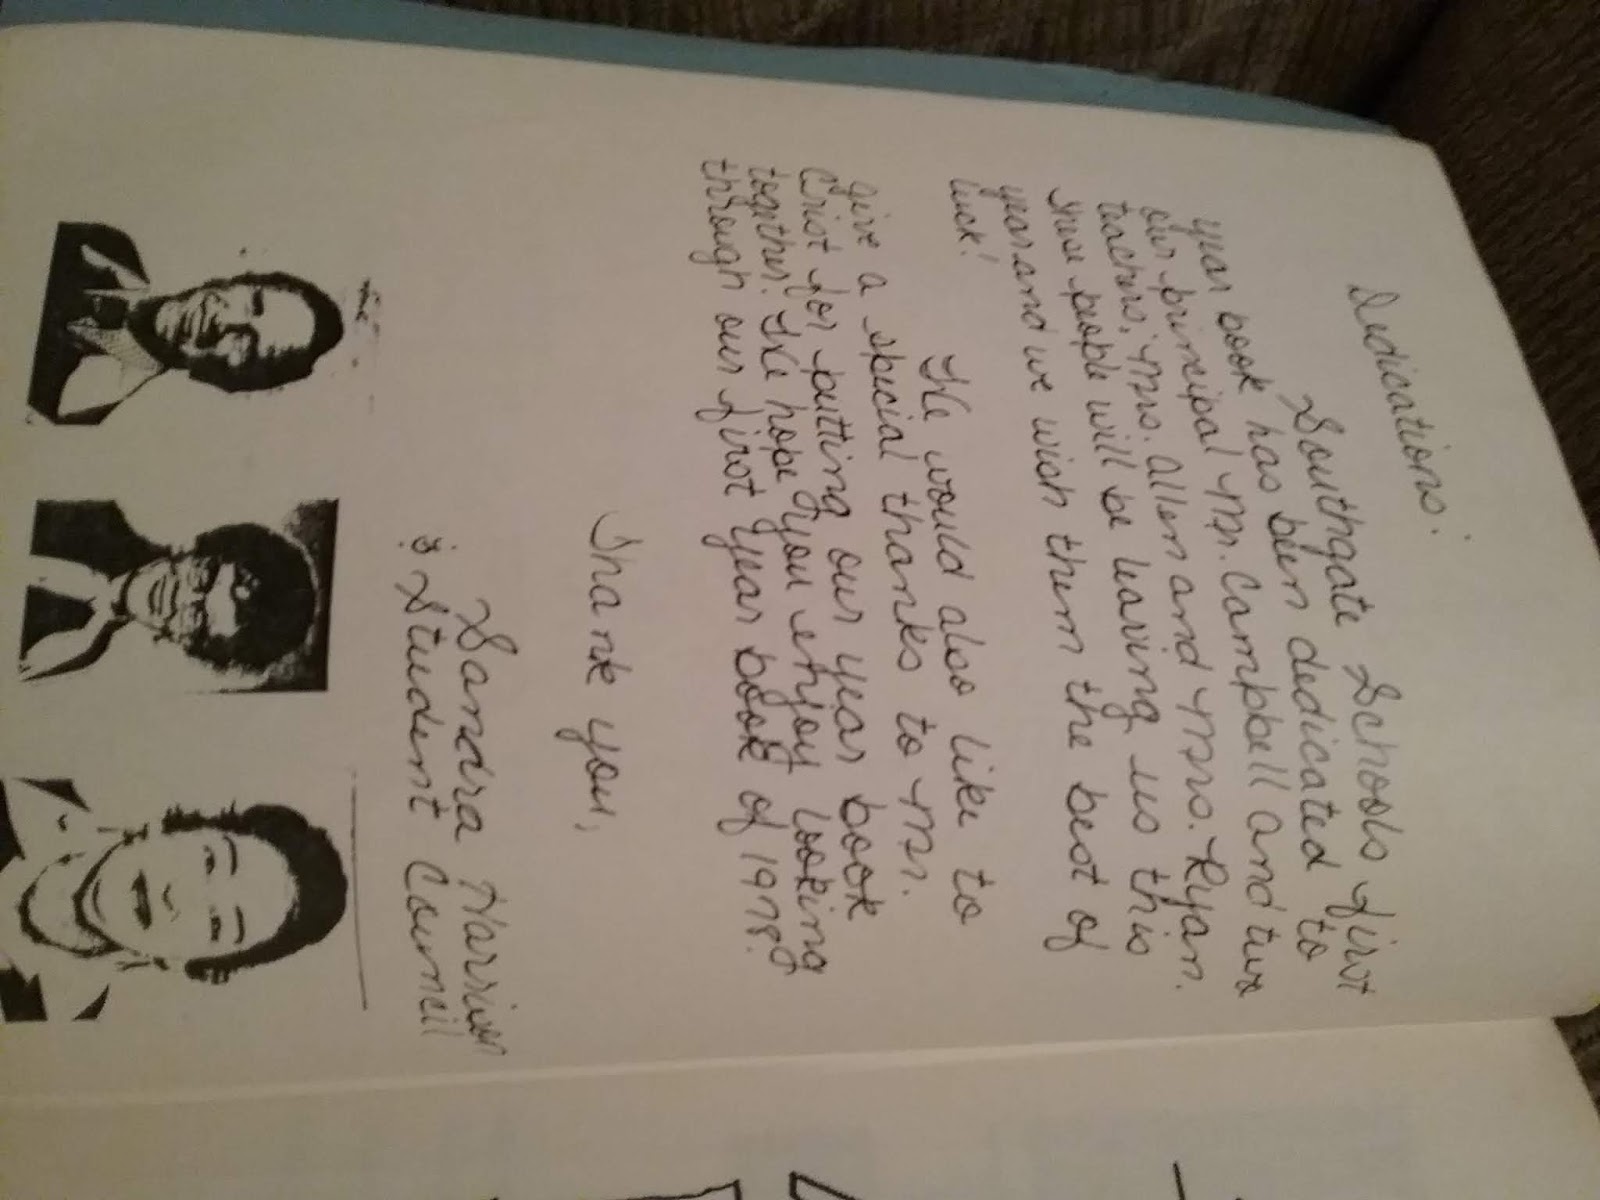 Dedications.
Southgate Schools first
year book has been dedicated to
our principal Mr. Campbell and two
teachers, Mrs. Allen and Mrs. Ryan.
These people will be leaving us this
year and we wish them the best of
luck!
We would also like to
give a special thanks to Mr.
Crist for putting our year book
together. We hope you enjoy looking
through our first year book of 1978.
Thank you,
Sandra Harrison
& Student Council